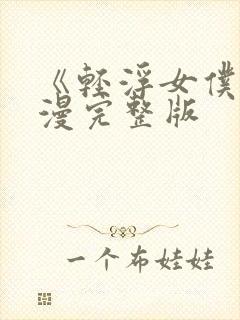 《轻浮女仆
漫完整版
一个布娃娃